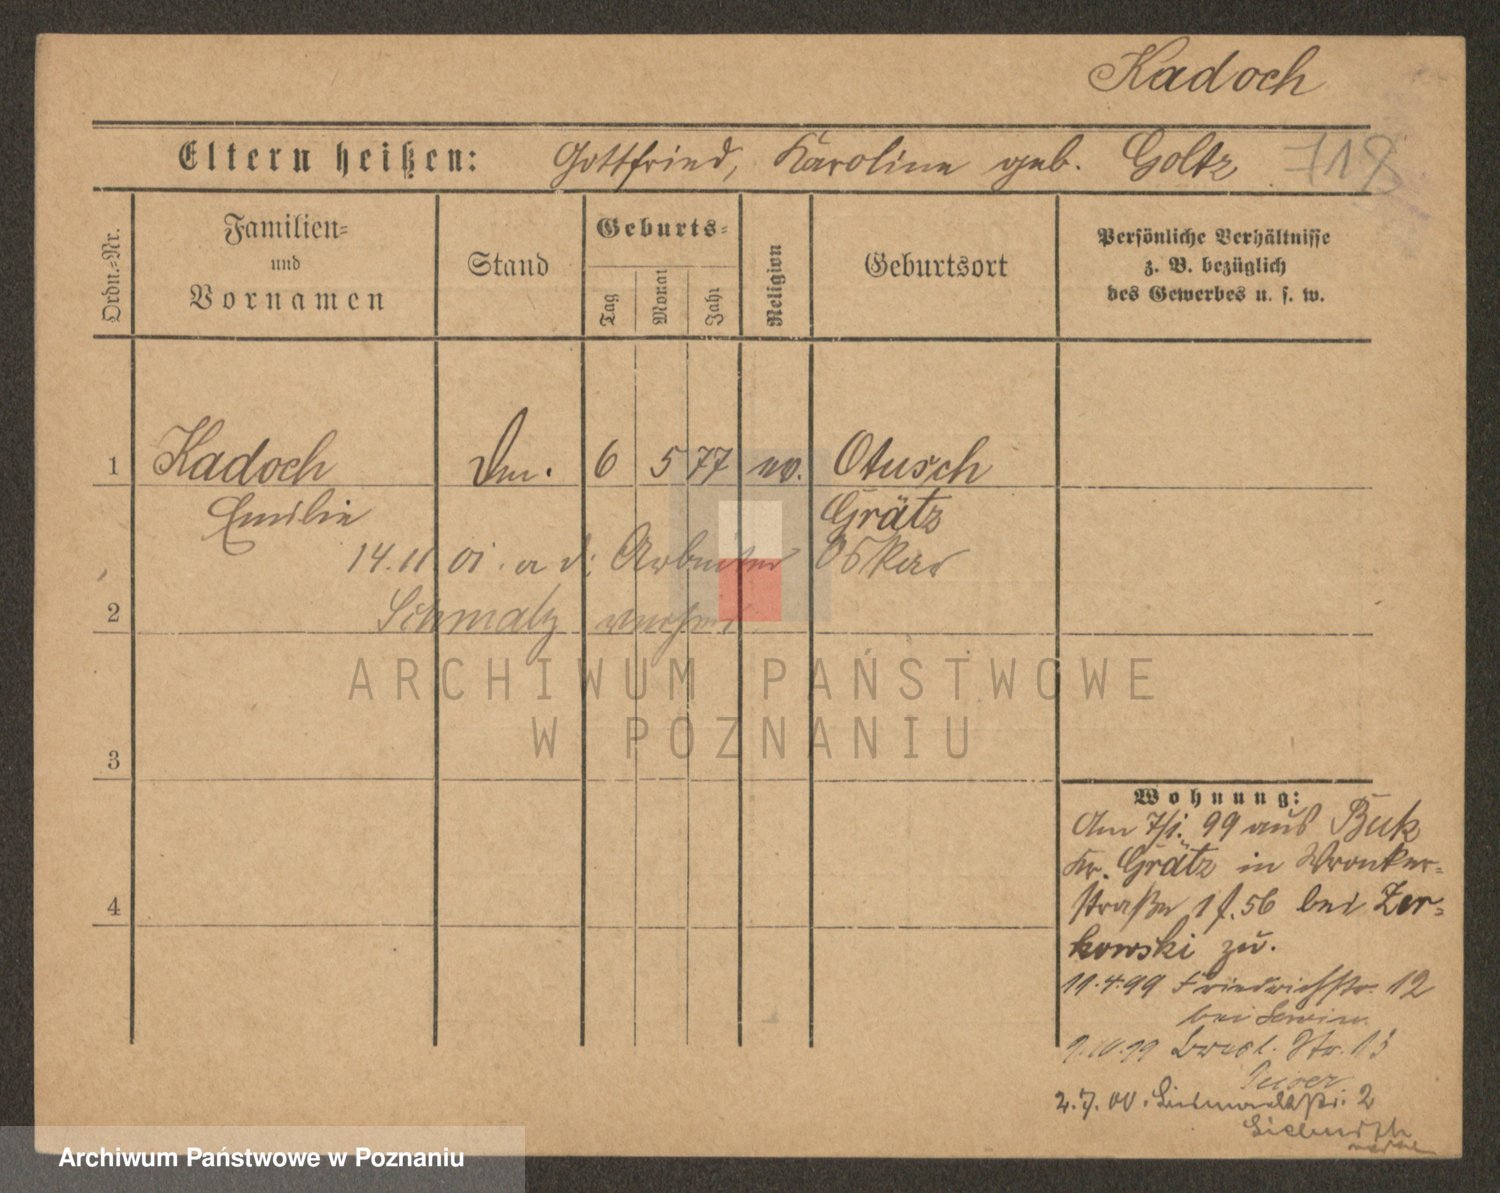 Kadoch
Eltern heißen: Gottfried, Karoline geb. Goltz
718
Ordn.-Nr.
Familien-
und
Vornamen
Stand
Geburts-
Tag
Monat
Jahr
Religion
Geburtsort
Persönliche Verhältnisse
z. B. bezüglich
des Gewerbes u. s. w.
1 Kadoch 6 5 77 ev. Otusch
Emilie Grätz
14.11 01. a d: Arbeiter Oskar
2 Schmalz
3
4
Wohnung:
Am 7/1. 99 aus Buk
Kr. Grätz in Wronker-
straße 56 bei Zer-
kowski zu.
11.4.99 Friedrichstr. 12
bei
9.10.99 Str.
2.7.00. 2
ARCHIWUM PAŃSTWOWE
W POZNANIU
Archiwum Państwowe w Poznaniu